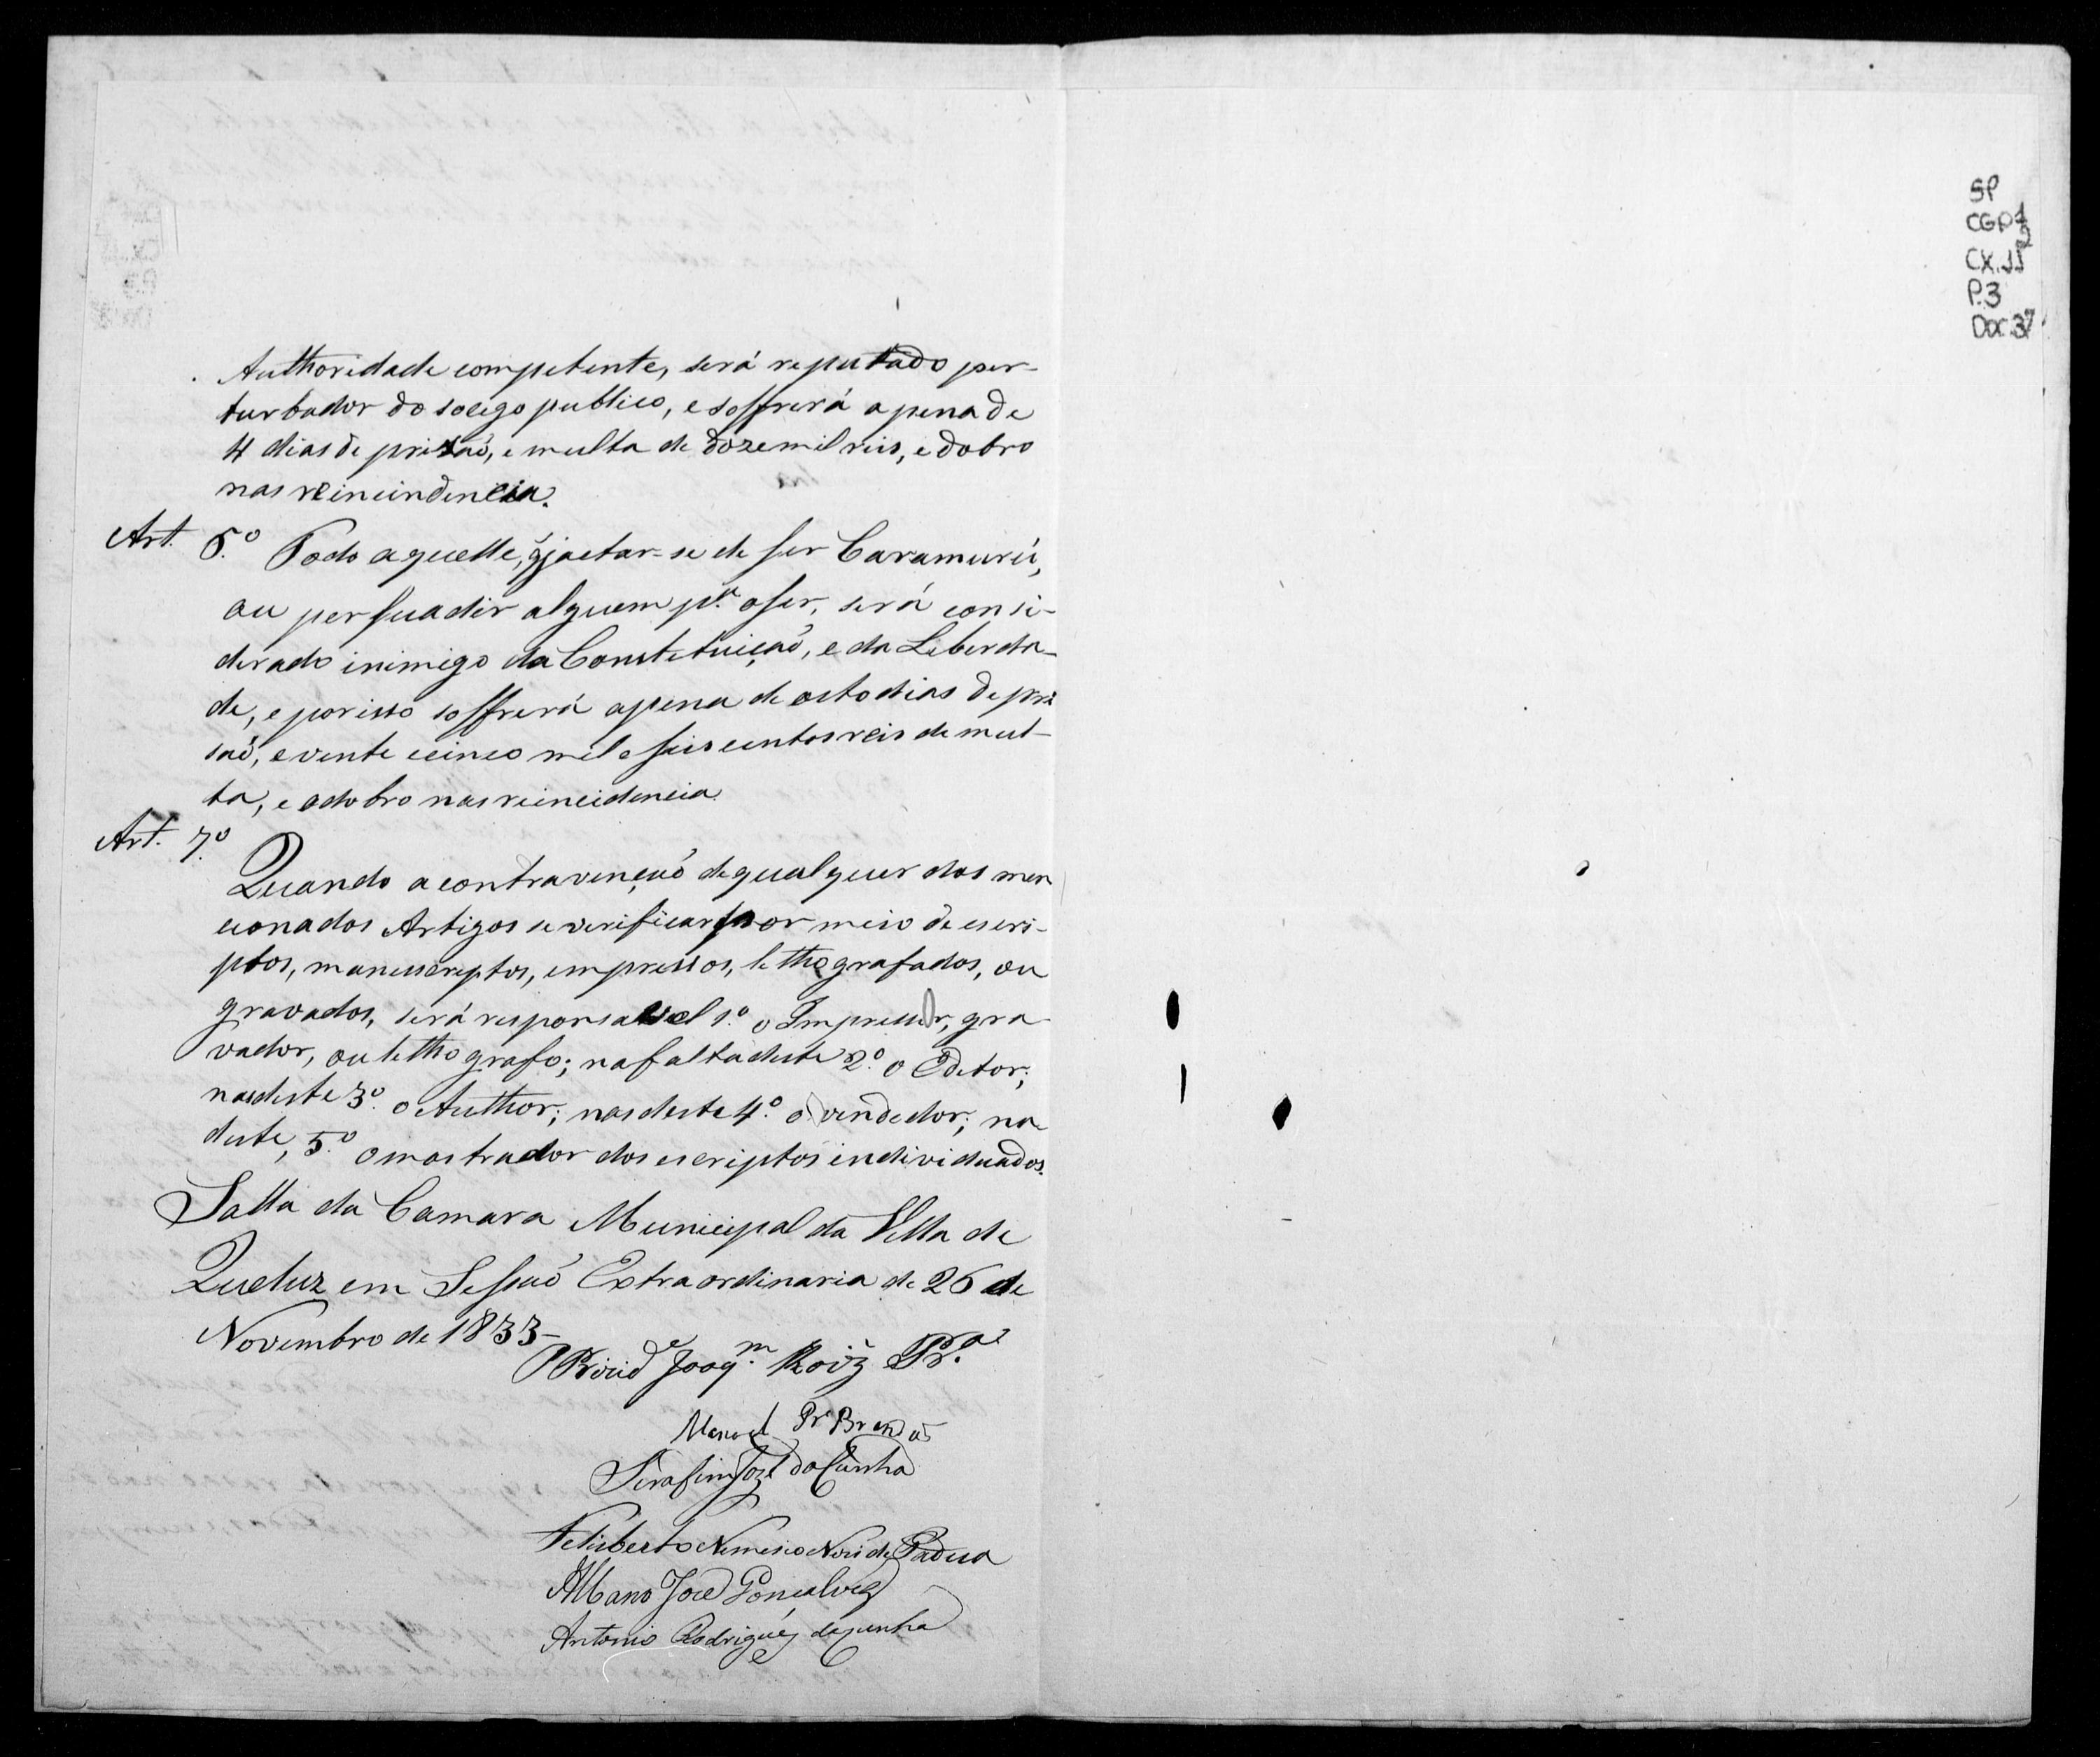 Authoridade competente, será reputado per-
turbador do socego publico, e soffrerá a pena de
4 dias de prisaõ, e multa de doze mil reis, e dobro
nas reincindencia.
Art. 6.º Todo aquelle, q̃ jactar-se de ser Caramurú,
ou persuadir alguem p.ª o ser, será consi-
derado inimigo da Constetuiçaõ, e da Leberda-
de, e por isso soffrerá a pena de oito dias de pri
saõ, e vente e cinco mil e seis centos reis de mul-
ta, e o dobro nas reincidencia.
Art. 7.º
Quando a contravençaõ de qualquer dos men
cionados Artigos se verificar por meio de escri-
ptos, manusscriptos, empressos, lethografados, ou
gravados, será responsavel 1.º o Impressor, gra
vador, ou lethografo; na falta deste 2.º o Edetor;
nas deste 3.º o Author; nas deste 4.º o vendedor; na
deste, 5.º o mostrador dos escriptos individuados.
Salla da Camara Municipal da Villa de
Queluz em Sessaõ Extraordinaria de 26 de
Novembro de 1833-
Joaq.m Roiz Pr.ª
Manoel Pr.ª Brandaõ
Serafim Joze da Cunha
Feliberto Nemesio Neri de Padua
Albano Joze Gonçalves
Antonio Rodrigues da Cunha
SP
CGP1
2
CX.11
P.3
Doc.37